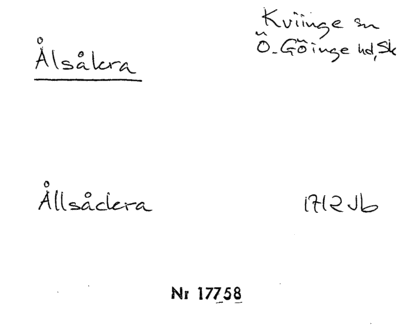 Kviinge sn
Ålsåkra
Ö. Göinge hd, Sk
Ållsåckra
1712 Jb
Nr 17758